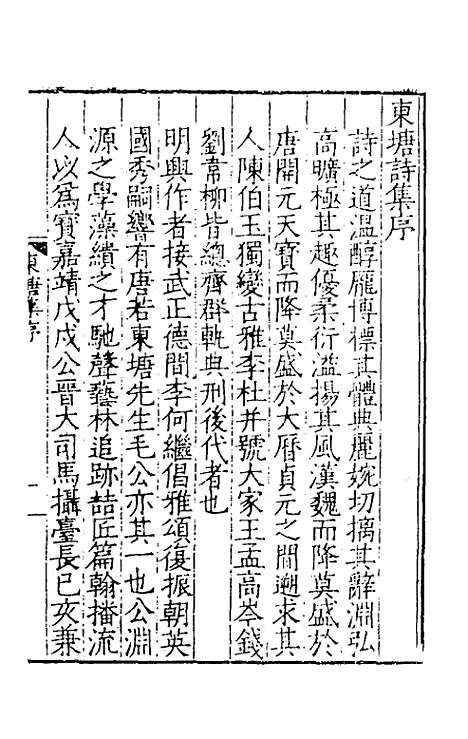 東塘詩集序
詩之道溫醇龐博標其體典麗婉切摛其辭淵弘
高曠極其趣優柔衍溢揚其風漢魏而降莫盛於
唐開元天寶而降莫盛於大曆貞元之間遡求其
人陳伯玉獨變古雅李杜并號大家王孟高岑錢
劉韋柳皆總齊群軌典刑後代者也
明興作者接武正德間李何繼倡雅頌復振朝英
國秀嗣響有唐若東塘先生毛公亦其一也公淵
源之學藻繢之才馳聲藝林追跡喆匠篇翰播流
人以爲寶嘉靖戊戌公晉大司馬攝臺長已亥兼
東塘集序